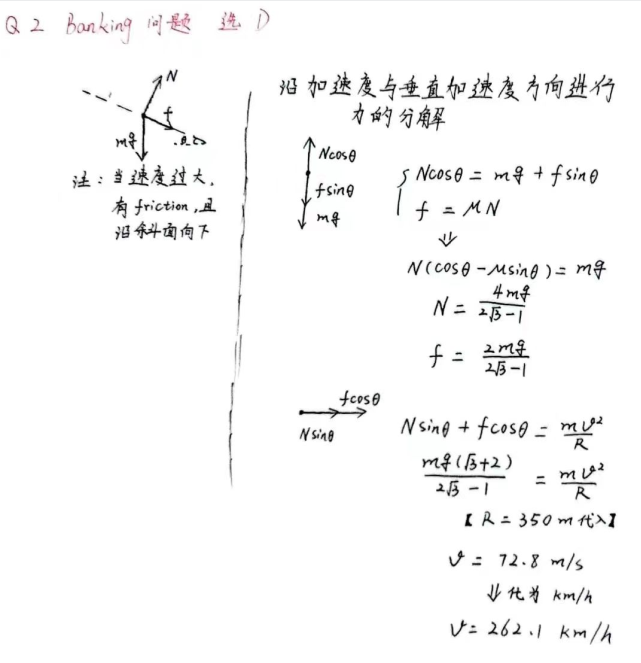 Q2 Banking 问题 选 D
N
f
mg
注：当速度过大，
有 friction，且
沿斜面向下
沿加速度与垂直加速度方向进行
力的分解
Ncosθ
fsinθ
mg
Ncosθ = mg + fsinθ
f = μN
⇓
N(cosθ - μsinθ) = mg
N = 4mg/(2√3-1)
f = 2mg/(2√3-1)
fcosθ
Nsinθ
Nsinθ + fcosθ = mv²/R
mg(√3+2)/(2√3-1) = mv²/R
【R = 350m 代入】
v = 72.8 m/s
⇓ 化为 km/h
v = 262.1 km/h